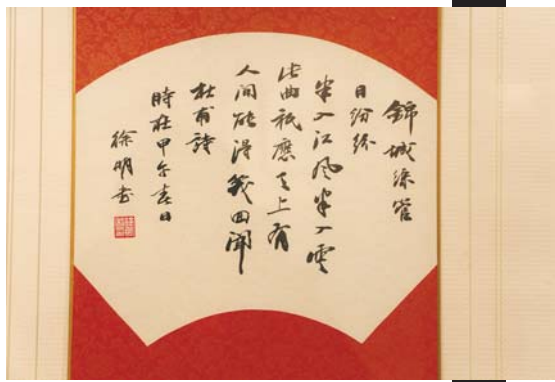 錦城絲管
日紛紛
半入江風半入雲
此曲祇應天上有
人间能得幾回聞
杜甫詩
時在甲午春日
徐明书